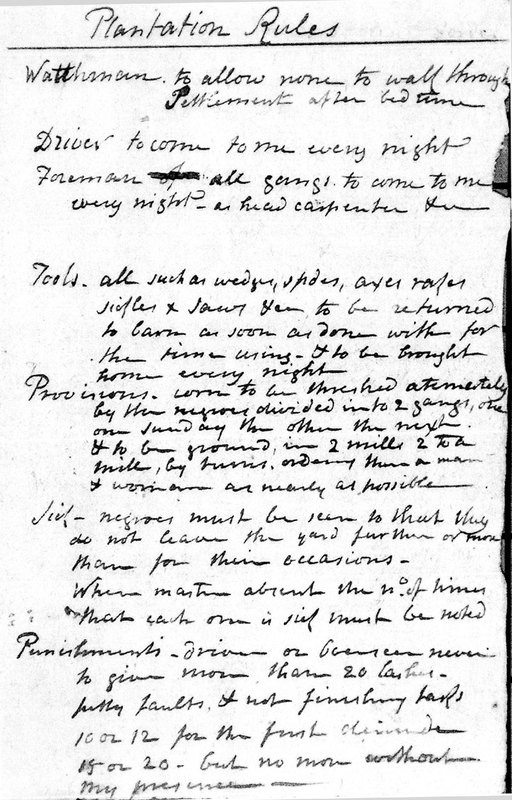 Plantation Rules
Watchman. to allow none to walk through
Settlement after bed time
Driver to come to me every night
Foreman of all gangs to come to me
every night - as head carpenter &c
Tools - all such as wedges, spades, axes
sickles & saws &c to be returned
to barn as soon as done with for
the time using - & to be brought
home every night
Provisions - corn to be threshed alternately
by the negroes divided into 2 gangs, one
one sunday the other the next.
& to be ground, in 2 mills 2 to a
mill, by turns. ordering them a man
& woman as nearly as possible
Sick - negroes must be seen to that they
do not leave the yard further or more
than for their occasions -
When master absent the no. of times
that each one is sick must be noted
Punishments - driver or overseer never
to give more than 20 lashes -
petty faults, & not finishing tasks
10 or 12 for the first
15 or 20 - but no more without
my presence